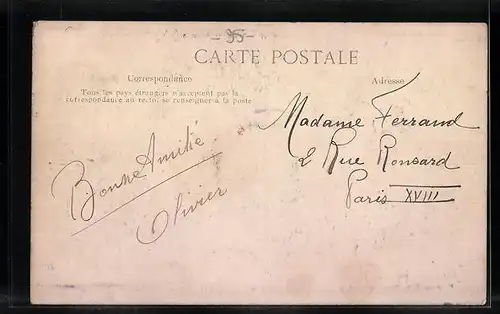 35
CARTE POSTALE
Correspondance
Tous les pays étrangers n'acceptent pas la
correspondance au recto, se renseigner à la poste
Adresse
Bonne Amitié
Olivier
Madame Ferrand
2 Rue Ronsard
Paris XVIII